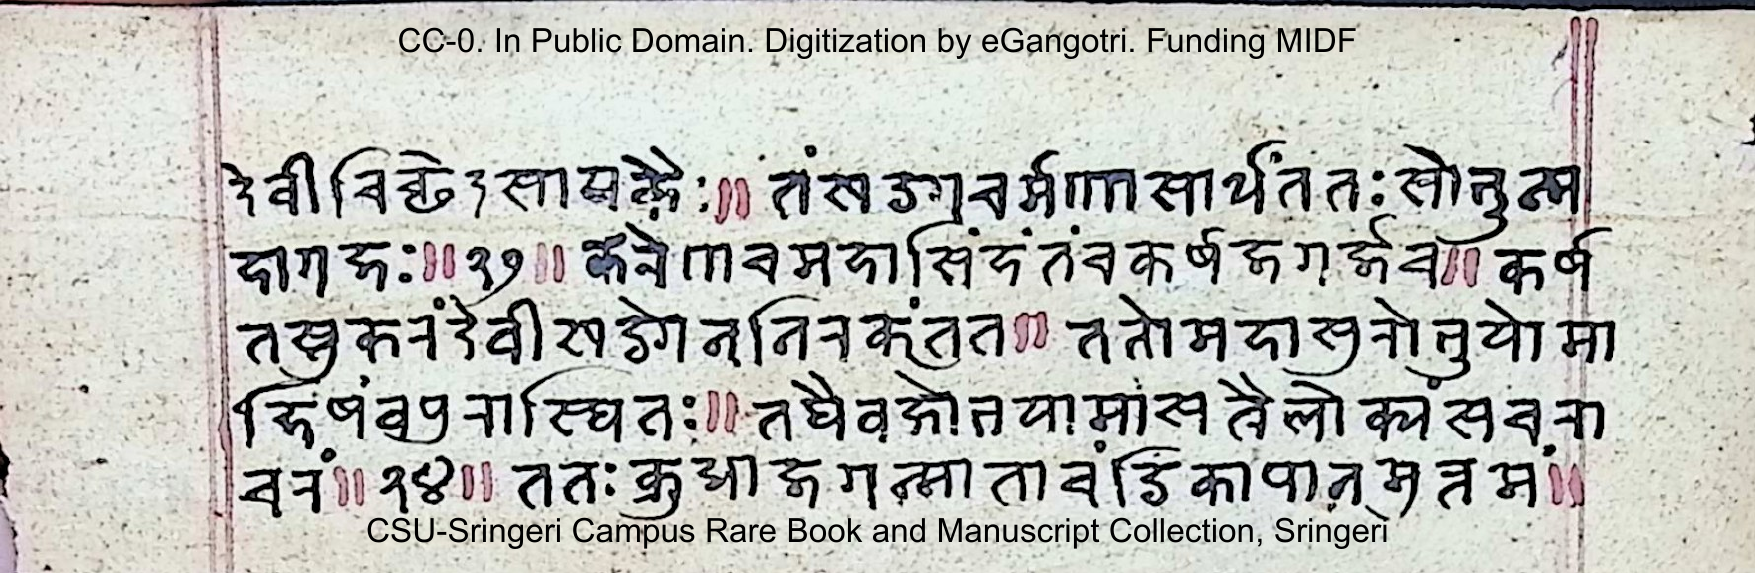 CC-0. In Public Domain. Digitization by eGangotri. Funding MIDF
देवीचिच्छेदसायकैः॥ तंखड्गचर्मणासार्धंततःसोभून्म
हागजः॥२७॥ करेणचमहासिंहंतंचकर्षजगर्जच॥ कर्ष
तस्तुकरंदेवीखड्गेननिरकृंतत॥ ततोमहासुरोभूयोमा
हिषंवपुरास्थितः॥ तथैवक्षोभयामासत्रैलोक्यंसचरा
चरं॥२४॥ ततःक्रुद्धाजगन्माताचंडिकापानमुत्तमं॥
CSU-Sringeri Campus Rare Book and Manuscript Collection, Sringeri